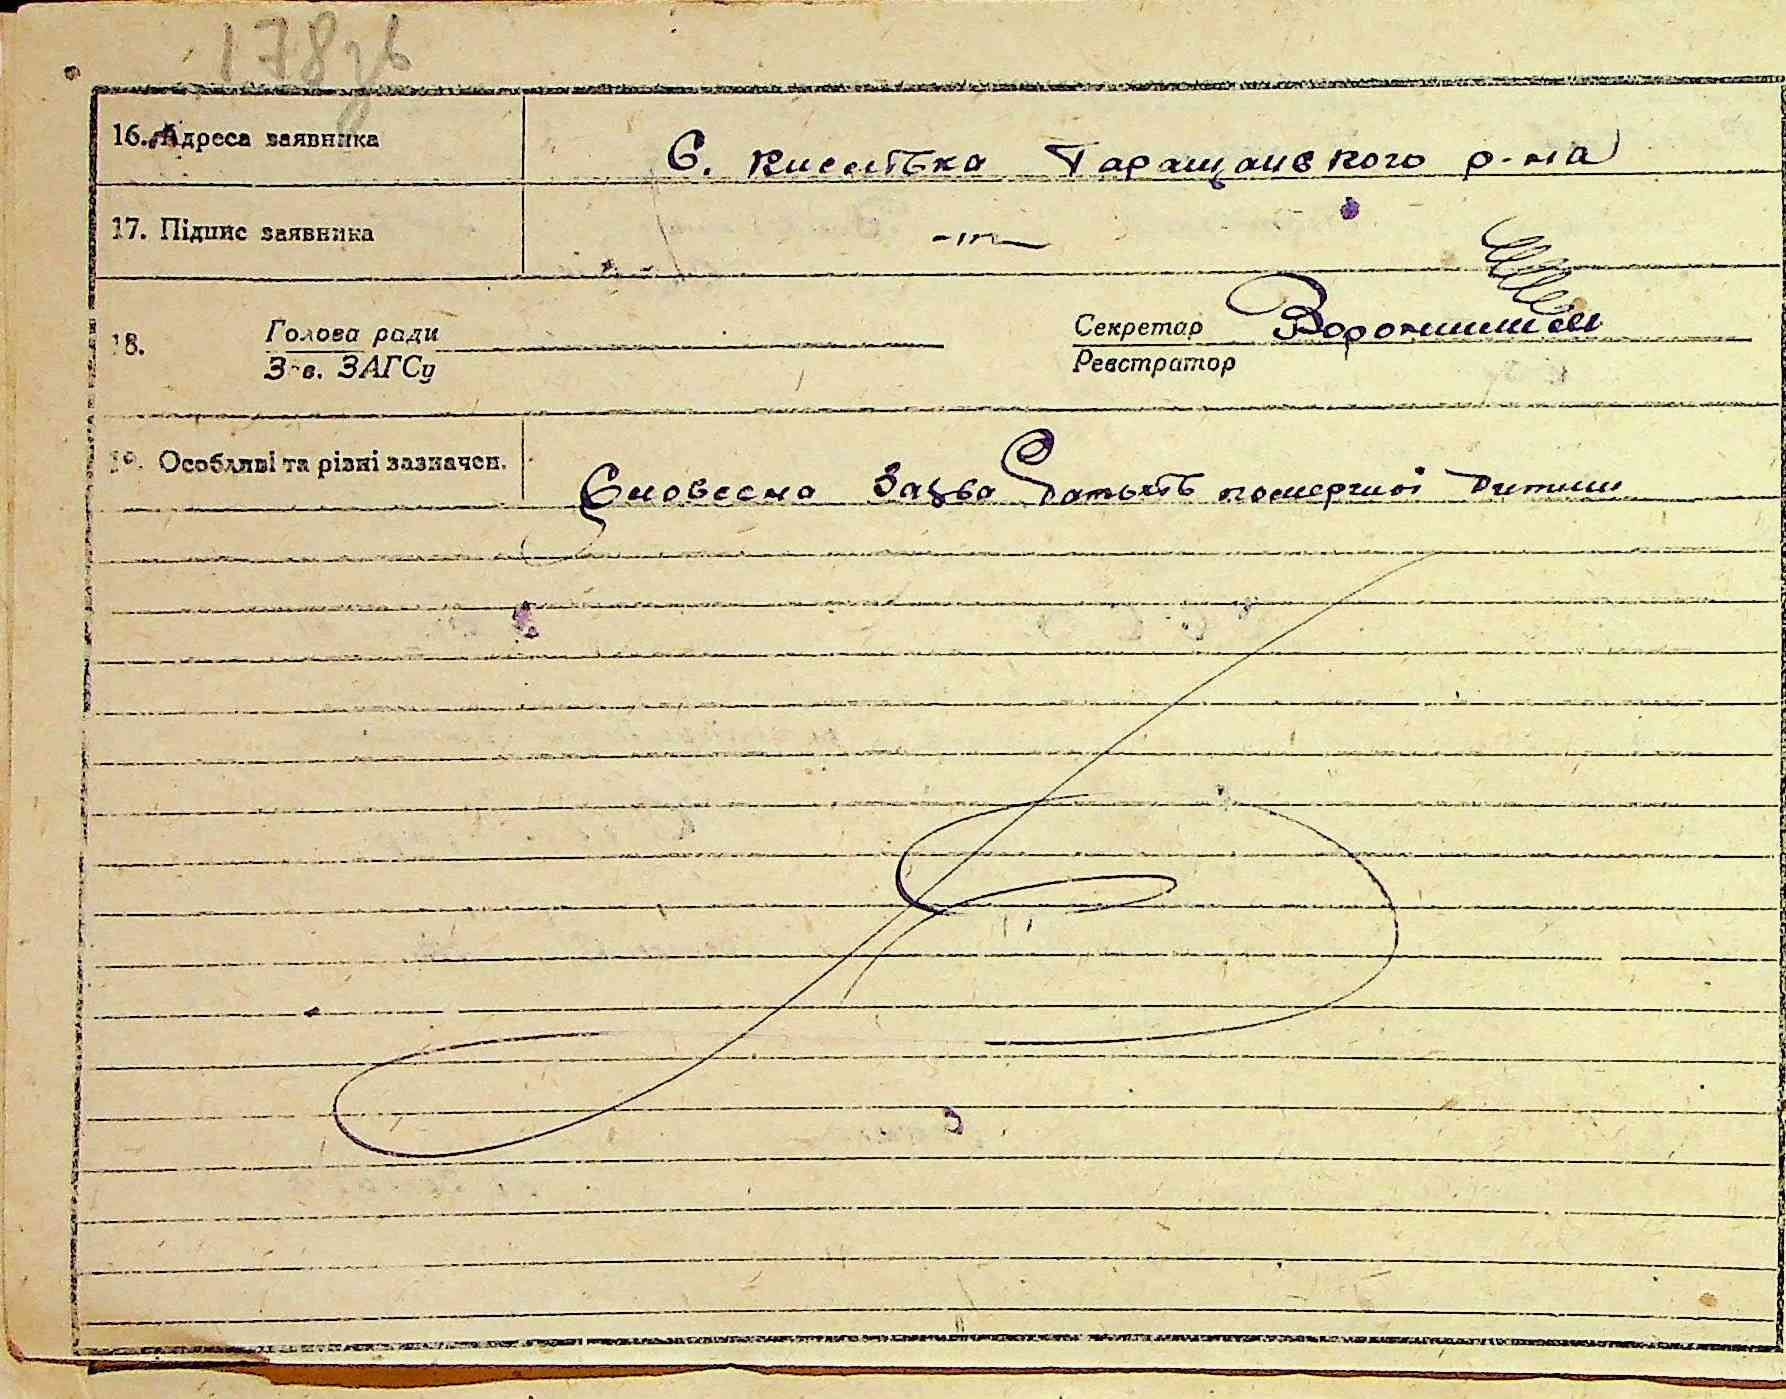 178 зв
16. Адреса заявника С. Кислівка Таращанського р-на
17. Підпис заявника -"-
18. Голова ради Секретар
З-в. ЗАГСу Реєстратор
19. Особливі та різні зазначен. Словесна Заява батьків померлої дитини